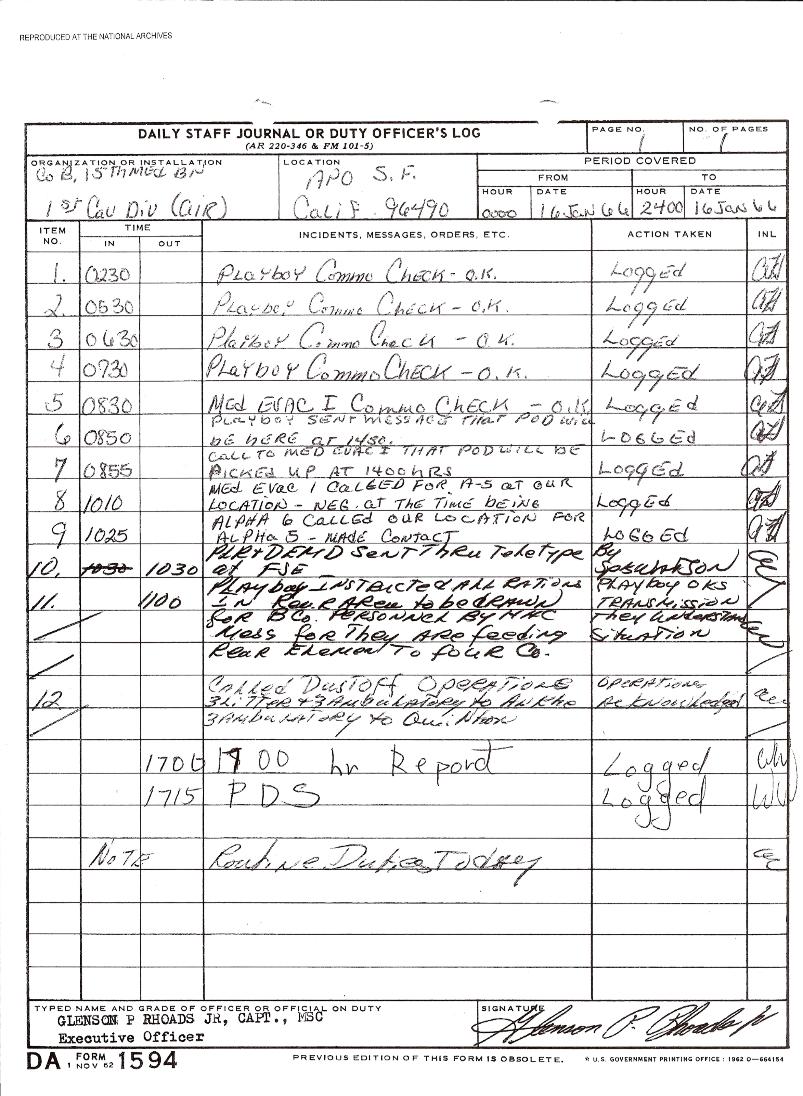 REPRODUCED AT THE NATIONAL ARCHIVES
DAILY STAFF JOURNAL OR DUTY OFFICER'S LOG
(AR 220-346 & FM 101-5)
PAGE NO. 1
NO. OF PAGES 1
ORGANIZATION OR INSTALLATION
Co B, 15TH MED BN
1st Cav Div (AIR)
LOCATION
APO S.F.
Calif. 96490
PERIOD COVERED
FROM TO
HOUR DATE HOUR DATE
0000 16 Jan 66 2400 16 Jan 66
ITEM NO. TIME IN OUT INCIDENTS, MESSAGES, ORDERS, ETC. ACTION TAKEN INL
1. 0230 PLAYBOY Commo CHECK - O.K. LOGGED
2. 0530 PLAYBOY Commo CHECK - O.K. LOGGED
3 0630 PLAYBOY Commo CHECK - O.K. LOGGED
4 0730 PLAYBOY Commo CHECK - O.K. LOGGED
5 0830 MED EVAC I Commo CHECK - O.K. LOGGED
6 0850 PLAYBOY SENT MESSAGE THAT POD WILL
BE HERE AT 1430. LOGGED
7 0855 CALL TO MED EVAC I THAT POD WILL BE
PICKED UP AT 1400 HRS LOGGED
8 1010 MED EVAC 1 CALLED FOR A-5 AT OUR
LOCATION - NEG. AT THE TIME BEING LOGGED
9 1025 ALPHA 6 CALLED OUR LOCATION FOR
ALPHA 5 - MADE CONTACT LOGGED
10. 1030 1030 SENT THRU TELETYPE By
at FSE
11. 1100 PLAYboy INSTRUCTED ALL RATIONS PLAYBOY OKS
IN Rear AREA to be DRAWN TRANSMISSION
for B Co. PERSONNEL BY HHC They UNDERSTAND
Mess for They ARE feeding SITUATION
Rear Element To four Co.
12 Called Dustoff OPERATIONS OPERATIONS
3 LITTER + 3 AMbuLATORY to AN Khe AcKnowledged
3 AmbuLATORY to Qui Nhon
1700 1700 hr Report Logged
1715 PDS Logged WW
NOTE Routine Duties Today
TYPED NAME AND GRADE OF OFFICER OR OFFICIAL ON DUTY
GLENSON P RHOADS JR, CAPT., MSC
Executive Officer
SIGNATURE
Glenson P. Rhoads jr
DA FORM 1 NOV 62 1594
PREVIOUS EDITION OF THIS FORM IS OBSOLETE.
☆ U.S. GOVERNMENT PRINTING OFFICE : 1962 O—664154